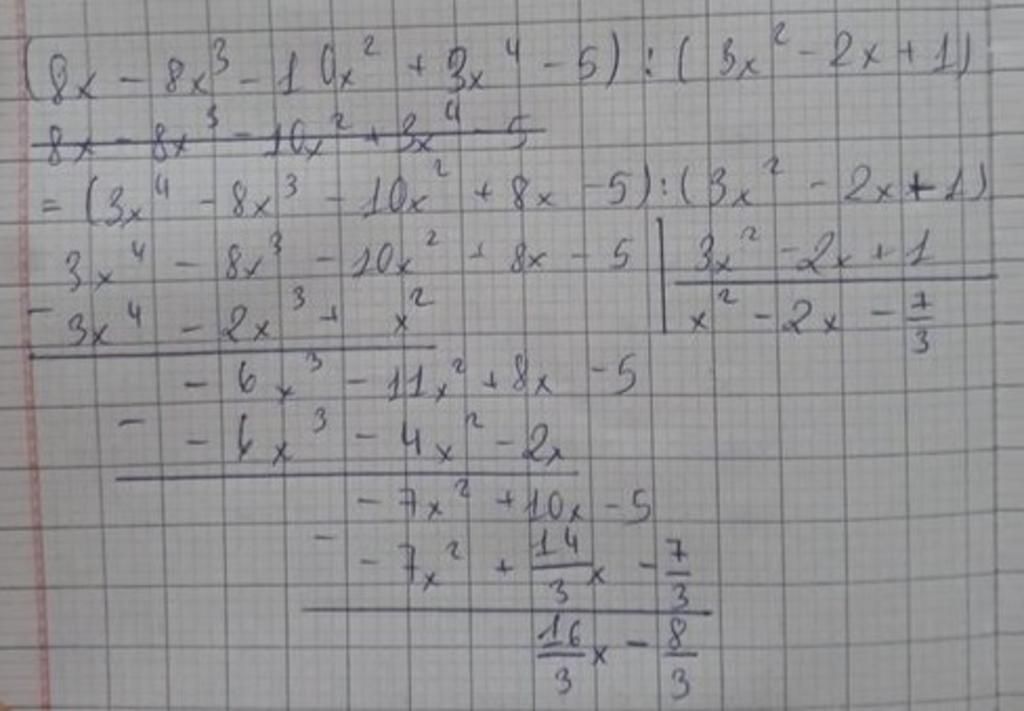 (8x - 8x³ - 10x² + 3x⁴ - 5) : (3x² - 2x + 1)
8x - 8x³ - 10x² + 3x⁴ - 5
= (3x⁴ - 8x³ - 10x² + 8x - 5) : (3x² - 2x + 1)
3x⁴ - 8x³ - 10x² + 8x - 5 | 3x² - 2x + 1
- 3x⁴ - 2x³ + x² | x² - 2x - 7/3
- 6x³ - 11x² + 8x - 5
- - 6x³ - 4x² - 2x
- 7x² + 10x - 5
- - 7x² + 14/3 x - 7/3
16/3 x - 8/3